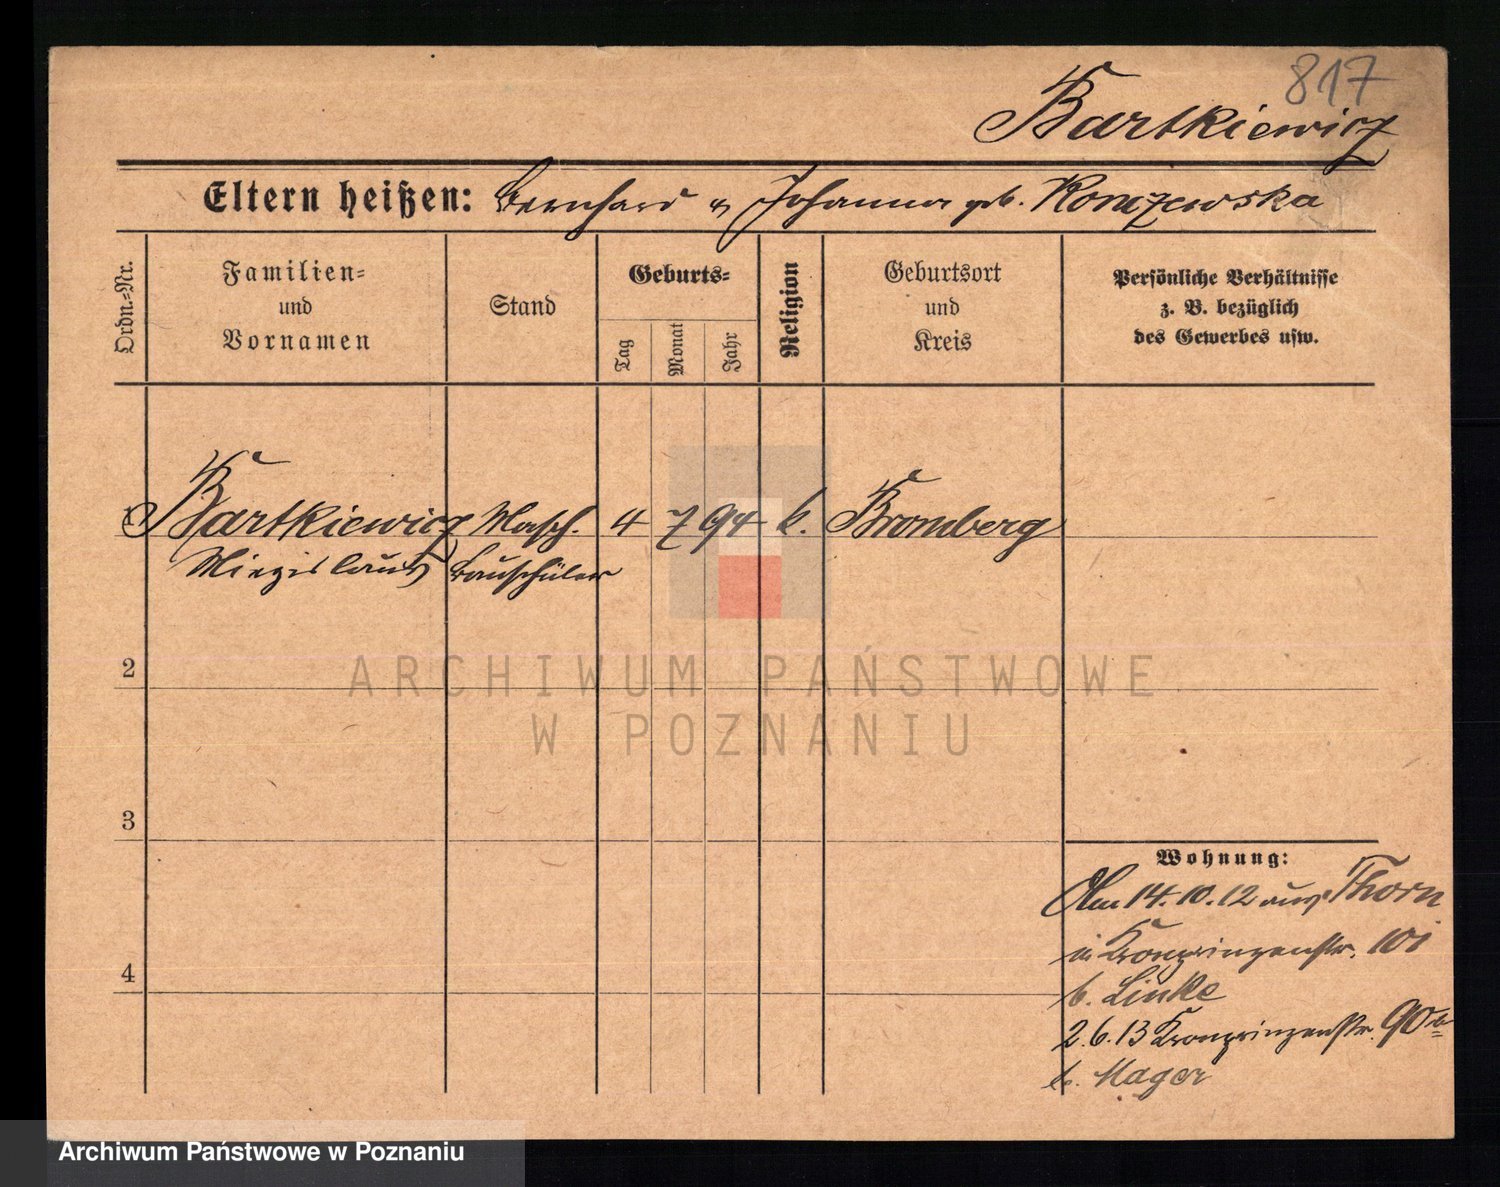 817
Bartkiewicz
Eltern heißen: Bernhard u. Johanna geb.
Ordn.=Nr.
Familien=
und
Vornamen
Stand
Geburts=
Tag
Monat
Jahr
Religion
Geburtsort
und
Kreis
Persönliche Verhältnisse
z. B. bezüglich
des Gewerbes usw.
Bartkiewicz Masch. 4 7 94 k. Bromberg
Miezislaus Bauschüler
2
3
4
Wohnung:
Am 14.10.12 aus Thorn
in Kronprinzenstr.
b. Linke
2.6.13 Kronprinzenstr. 90
b. Mager
ARCHIWUM PAŃSTWOWE
W POZNANIU
Archiwum Państwowe w Poznaniu